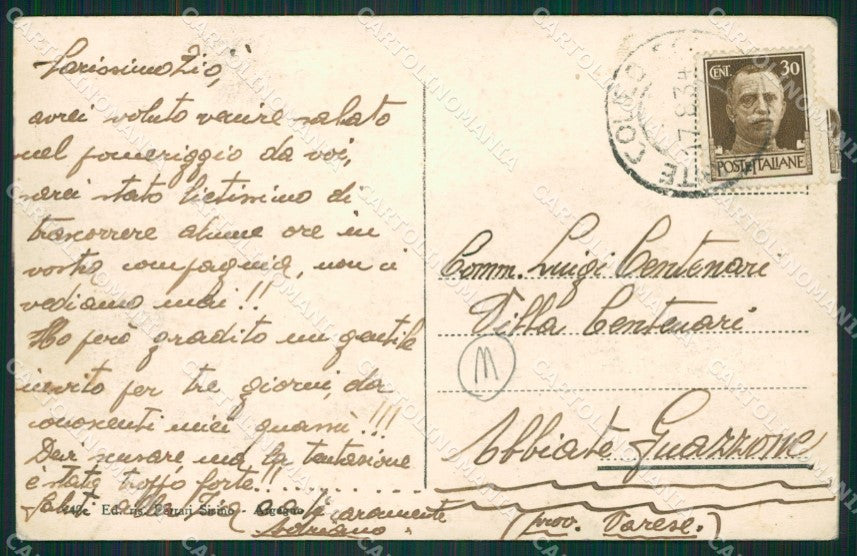 Carissimo Zio,
avrei voluto venire sabato
nel pomeriggio da voi,
sarei stato lietissimo di
trascorrere alcune ore in
vostra compagnia, non ci
vediamo mai!!
Ho però gradito un gentile
invito per tre giorni, da
conoscenti miei quassù!!!
Devi scusare ma la tentazione
è stata troppo forte!!
Saluti alla Zia e a te caramente
Adriano
Ediz. ris. Ferrari Sirino - Argegno
CENT. 30
POSTE ITALIANE
COLEO
17.8.34
Comm. Luigi Centenari
Villa Centenari
M
Abbiate Guazzone
(prov. Varese.)
CARTOLINOMANIA